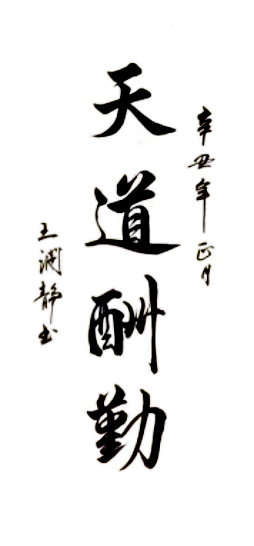 辛丑年正月
天道酬勤
王润静书